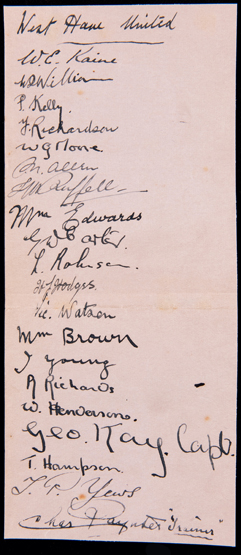 West Ham United
W.E. Kaine
W. Williams
P. Kelly.
F. Richardson
W G Moore
M. Allen
Ruffell
Wm Edwards
G Carter.
L. Robinson.
H. J. Hodges
Vic. Watson
Wm Brown
J Young
P Richards
W. Henderson.
Geo. Kay. Capt.
T. Hampson.
T. P. Yews
Chas Paynter "Trainer"